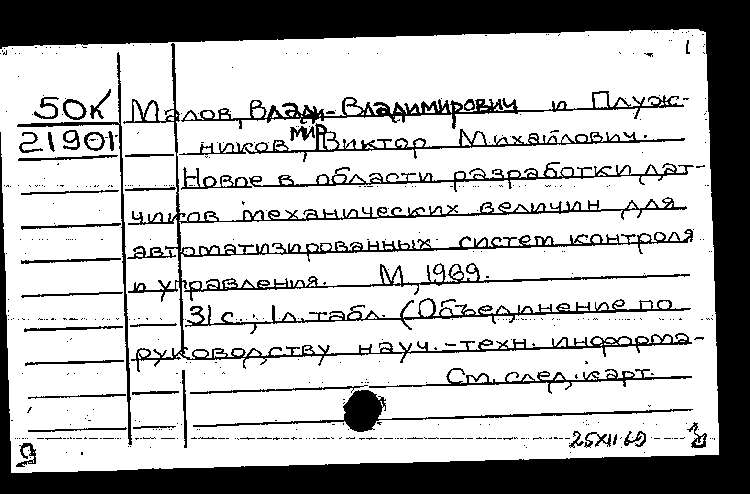 1
50К Малов, Влади- Владимирович и Плуж-
мир
21901 ников, Виктор Михайлович.
Новое в области разработки дат-
чиков механических величин для
автоматизированных систем контроля
и управления. М, 1969.
31 с.; 1л. табл. (Объединение по
руководству науч.-техн. информа-
См. след. карт.
25XII 69